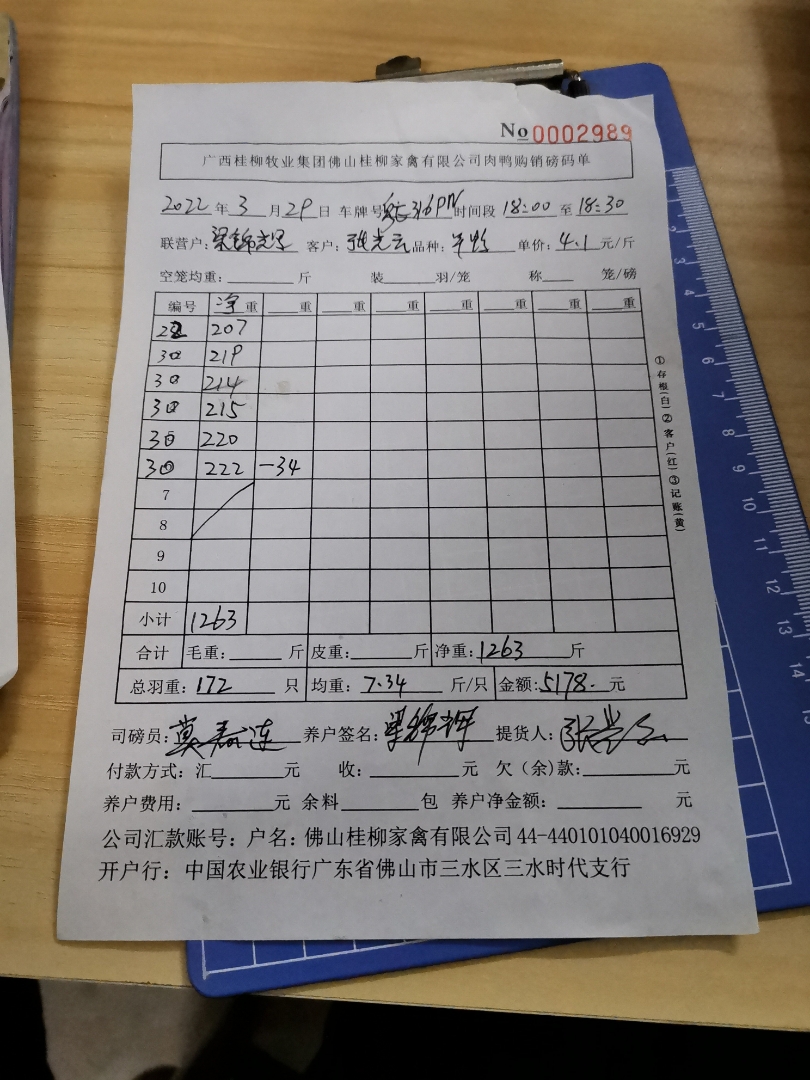 No 0002989
广西桂柳牧业集团佛山桂柳家禽有限公司肉鸭购销磅码单
2022年3月29日 车牌号 316PN 时间段 18:00 至 18:30
联营户: 客户:张光云 品种: 单价:4.1元/斤
空笼均重: 斤 装 羽/笼 称 笼/磅
编号 净重 重 重 重 重 重 重
22 207
30 219
30 214
30 215
30 220
30 222 -34
7
8
9
10
小计 1263
合计 毛重: 斤 皮重: 斤 净重:1263 斤
总羽重:172 只 均重:7.34 斤/只 金额:5178. 元
司磅员:莫春莲 养户签名: 提货人:张光云
付款方式:汇 元 收: 元 欠(余)款: 元
养户费用: 元 余料 包 养户净金额: 元
公司汇款账号:户名:佛山桂柳家禽有限公司 44-440101040016929
开户行:中国农业银行广东省佛山市三水区三水时代支行
①存根(白)②客户(红)③记账(黄)
3
4
5
6
7
8
9
10
11
12
13
14
15